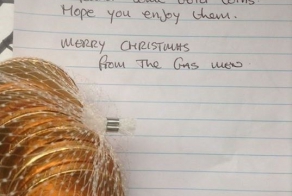 some gold coins.
Hope you enjoy them.
MERRY CHRISTMAS
from The Gas men